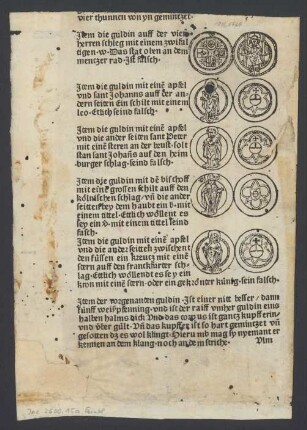 vier thunnen von yn gemintzet.
Jtem die guldin auff der vier
herren schleg mit einem zwifal
tigen·w·Das stat oben an dem
mentzer rad·Jst falsch·
Jtem die guldin mit einē apfel
vnd sant Johanns auff der an
dern seiten Ein schilt mit einem
leo·Etlich seind falsch·
Jtem die guldin mit einē apfel
vnd die ander seiten sant Peter
mit einē steren an der brust·solt
stan sant Johan̄s auff den heim
burger schlag·seind falsch·
Jtem die guldin mit dē bischoff
mit einē grossen schilt auff den
kölnischen schlag·vn̄ die ander
seitten bey dem haubt ein v·mit
einem tittel·Etlich wöllent es
sey ein v·mit einem tittel seind
falsch·
Jtem die guldin mit einē apfel
vnd die ander seitten zwischent
den füssen ein kreutz mit einē
stern auff den franckfurter sch·
lag·Etlich wöllent es sey ein
kron mit einē stern·oder ein gekrönter künig·sein falsch·
Jtem der vorgenanten guldin·Jst einer nitt besser·dann
fünff weißpfenning·vnd ist der raiff vmher guldin eins
halben halms dick Vnd das corpus ist gantz kupfferin·
vnd über gült·Vn̄ das kupffer ist so hart gemintzet vn̄
gesotten dz es wol klingt·Hierumb mag sy nyemant er
kennen an dem klang·noch an dem striche·
Vlm